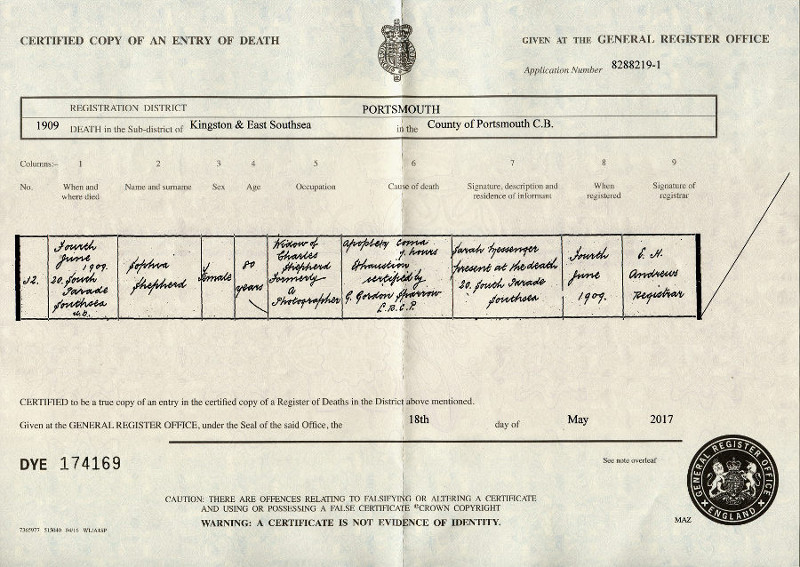 CERTIFIED COPY OF AN ENTRY OF DEATH
GIVEN AT THE GENERAL REGISTER OFFICE
Application Number 8288219-1
REGISTRATION DISTRICT PORTSMOUTH
1909 DEATH in the Sub-district of Kingston & East Southsea in the County of Portsmouth C.B.
Columns:- 1 2 3 4 5 6 7 8 9
No. When and where died Name and surname Sex Age Occupation Cause of death Signature, description and residence of informant When registered Signature of registrar
Fourth June 1909. 20. South Parade Southsea
Sophia Shepherd
Female
80 years
Widow of Charles Shepherd Formerly a Photographer
Apoplexy Coma 7 hours Exhaustion certified by G. Gordon Sparrow L.R.C.P.
Sarah Messenger present at the death 20. South Parade Southsea
Fourth June 1909.
E. H. Andrews Registrar
CERTIFIED to be a true copy of an entry in the certified copy of a Register of Deaths in the District above mentioned.
Given at the GENERAL REGISTER OFFICE, under the Seal of the said Office, the 18th day of May 2017
DYE 174169
See note overleaf
CAUTION: THERE ARE OFFENCES RELATING TO FALSIFYING OR ALTERING A CERTIFICATE
AND USING OR POSSESSING A FALSE CERTIFICATE ©CROWN COPYRIGHT
WARNING: A CERTIFICATE IS NOT EVIDENCE OF IDENTITY.
GENERAL REGISTER OFFICE
ENGLAND
MAZ